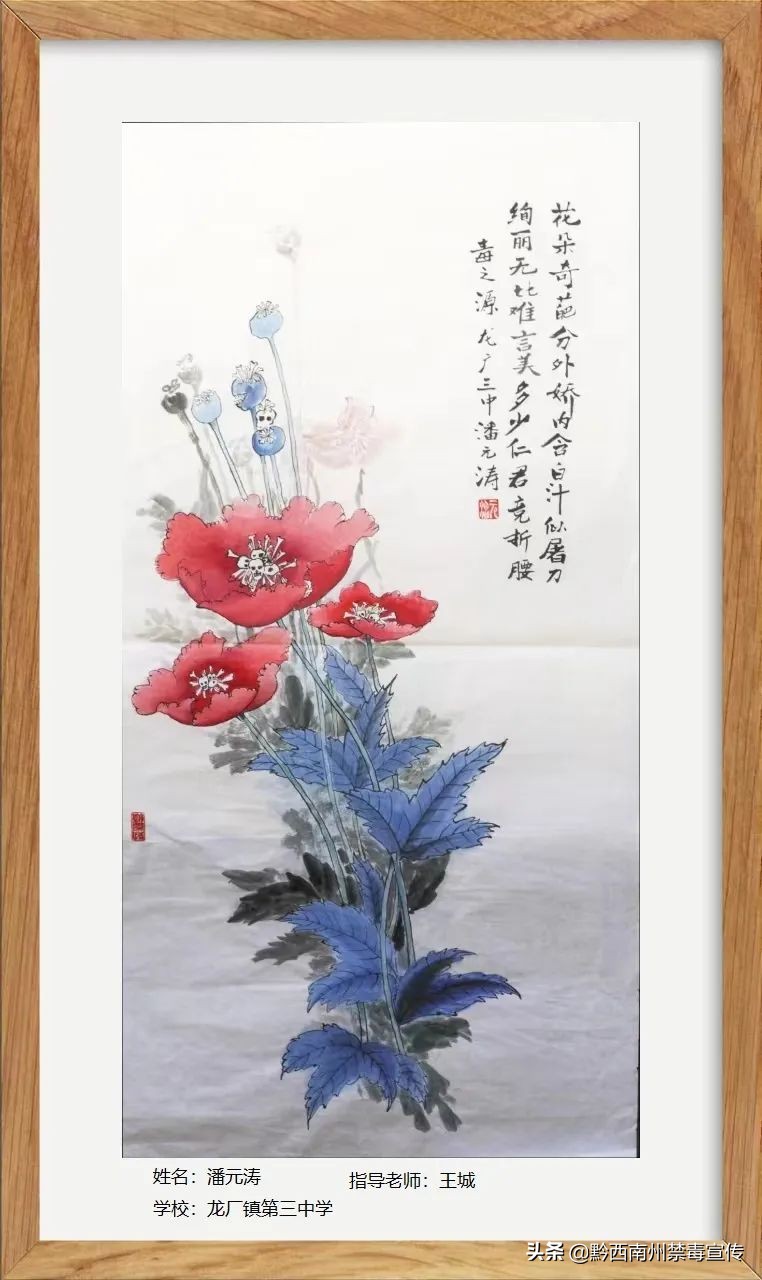 花朵奇葩分外娇内含白汁似屠刀
绚丽无比难言美多少仁君竞折腰
毒之源 龙广三中潘元涛
姓名：潘元涛
指导老师：王城
学校：龙厂镇第三中学
头条 @黔西南州禁毒宣传